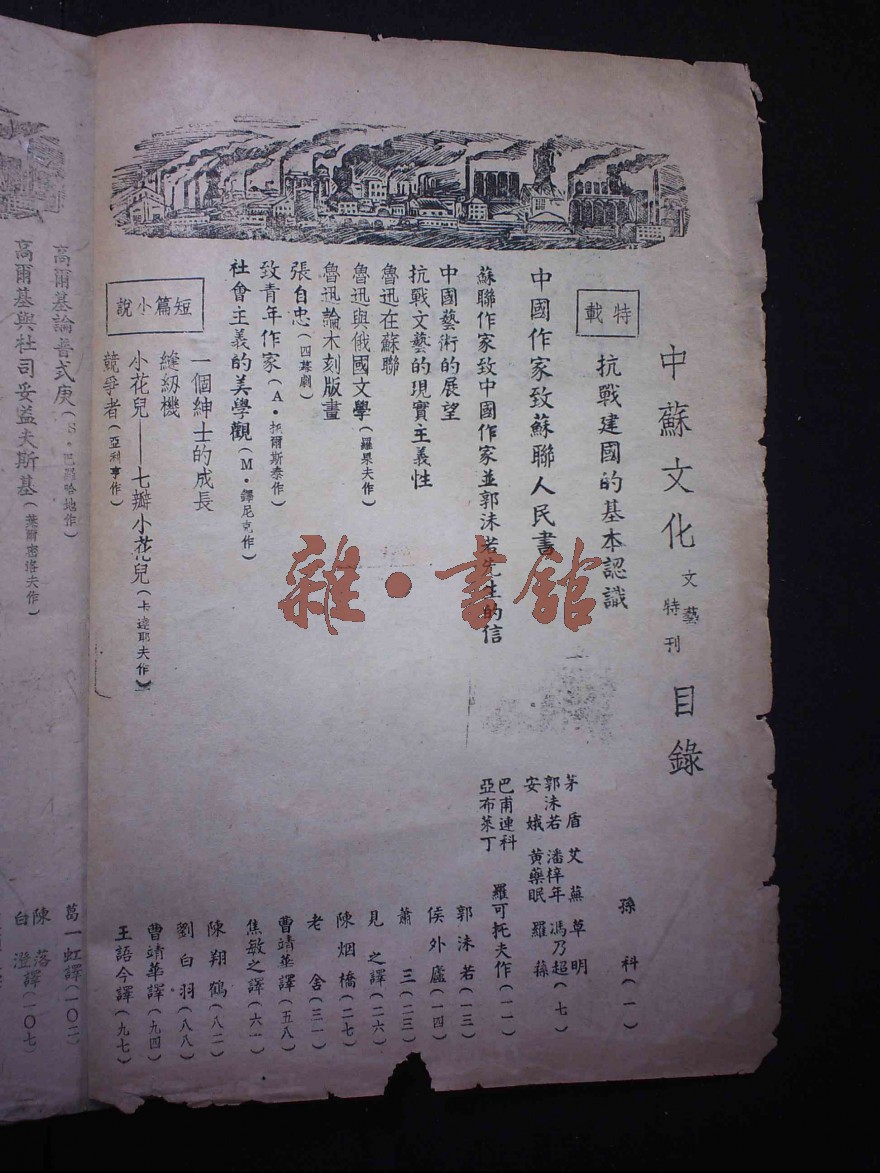 中蘇文化 文藝特刊 目錄
特載
抗戰建國的基本認識 孫科(一)
中國作家致蘇聯人民書 茅盾 艾蕪 草明 郭沫若 潘梓年 馮乃超 安娥 黃藥眠 羅蓀(七)
蘇聯作家致中國作家並郭沫若先生的信 巴甫連科 亞布萊丁 羅可托夫作(一一)
中國藝術的展望 郭沫若(一三)
抗戰文藝的現實主義性 侯外廬(一四)
魯迅在蘇聯 蕭三(二三)
魯迅與俄國文學(羅果夫作) 見之譯(二六)
魯迅論木刻版畫 陳烟橋(二七)
張自忠(四幕劇) 老舍(三一)
致青年作家(A·托爾斯泰作) 曹靖華譯(五八)
社會主義的美學觀(M·鐸尼克作) 焦敏之譯(六一)
短篇小說
一個紳士的成長 陳翔鶴(八二)
縫紉機 劉白羽(八八)
小花兒——七瓣小花兒(卡達耶夫作) 曹靖華譯(九四)
競爭者(亞利亨作) 王語今譯(九七)
高爾基論普式庚(S·巴羅哈地作) 葛一虹譯(一〇二)
高爾基與杜司妥益夫斯基(葉爾密洛夫作) 陳落譯 白澄(一〇七)
雜·書館